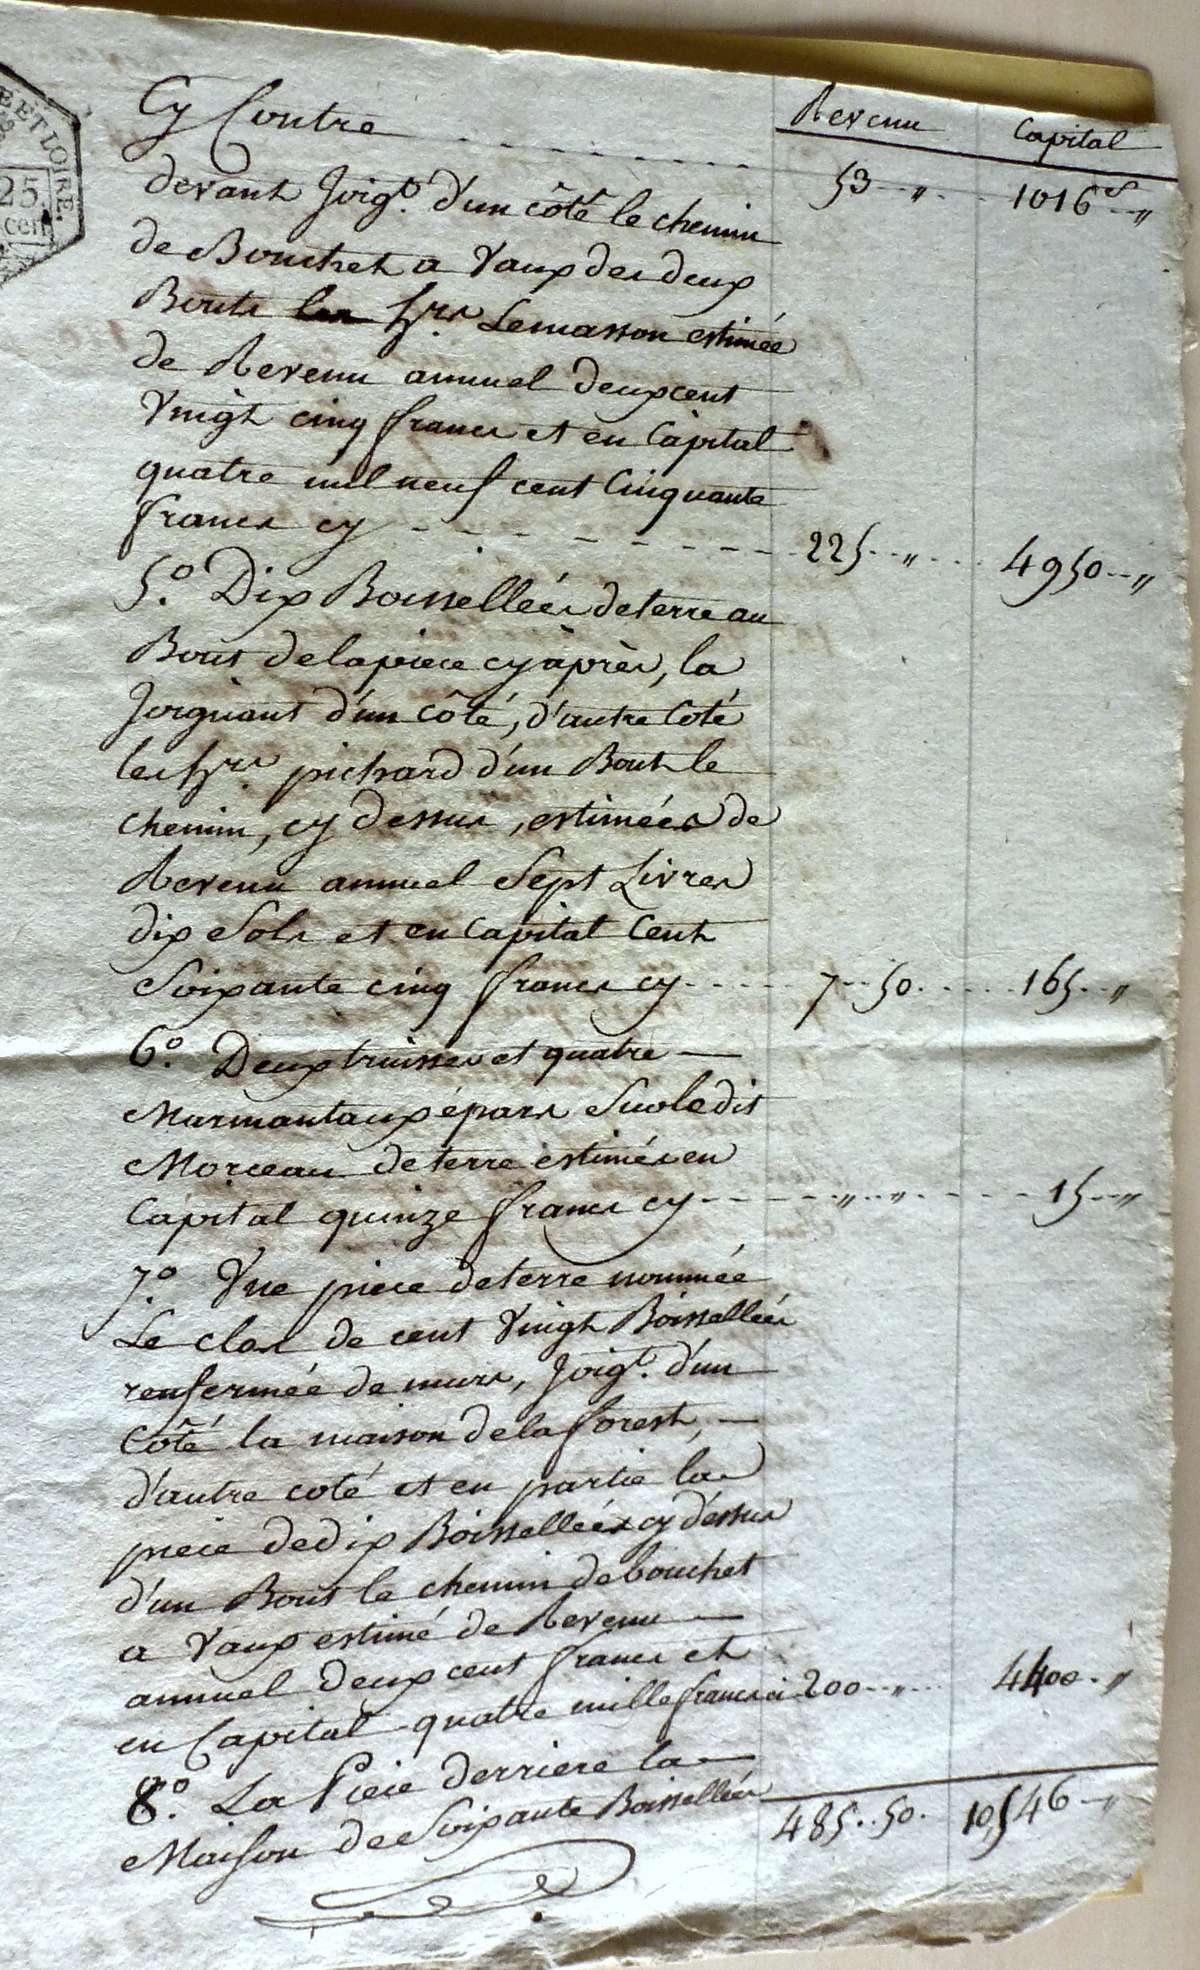 E ET LOIRE.
25.
cen
Revenu Capital
Cy Contre - - - - - - - - - 53 - " - - 1016 - "
devant Joig.t d'un côté le chemin
de Bouchet a Vaux des deux
Bouts les h.rs Lemasson estimée
de Revenu annuel deux cent
Vingt cinq francs et en Capital
quatre mil neuf cent Cinquante
francs cy - - - - - - - - - 225 - " - - 4950 - "
5.º Dix Boissellées de terre au
Bout de la piece cy après, la
Joignant d'un côté, d'autre Coté
les h.rs pichard d'un Bout le
chemin, cy dessus, estimées de
Revenu annuel Sept Livres
dix Sols et en Capital Cent
Soixante cinq francs cy - - - - 7 - 50 - - - - 165 - "
6.º Deux truisses et quatre —
Marmantaux épars Sur le dit
Morceau de terre estimés en
Capital quinze francs cy - - - - " - " - - - - 15 - "
7.º Une piece de terre nommée
Le clos de cent Vingt Boissellées
renfermée de murs, Joig.t d'un
Côté la maison de la forest, —
d'autre coté et en partie la
piece de dix Boissellées cy dessus
d'un Bout le chemin de bouchet
a Vaux estimé de Revenu —
annuel deux cent francs et
en Capital quatre mille francs ci 200 - " - - 4400 - "
8.º La Piece derriere la —
Maison de Soixante Boissellées
485 . 50 . 10,546 - "